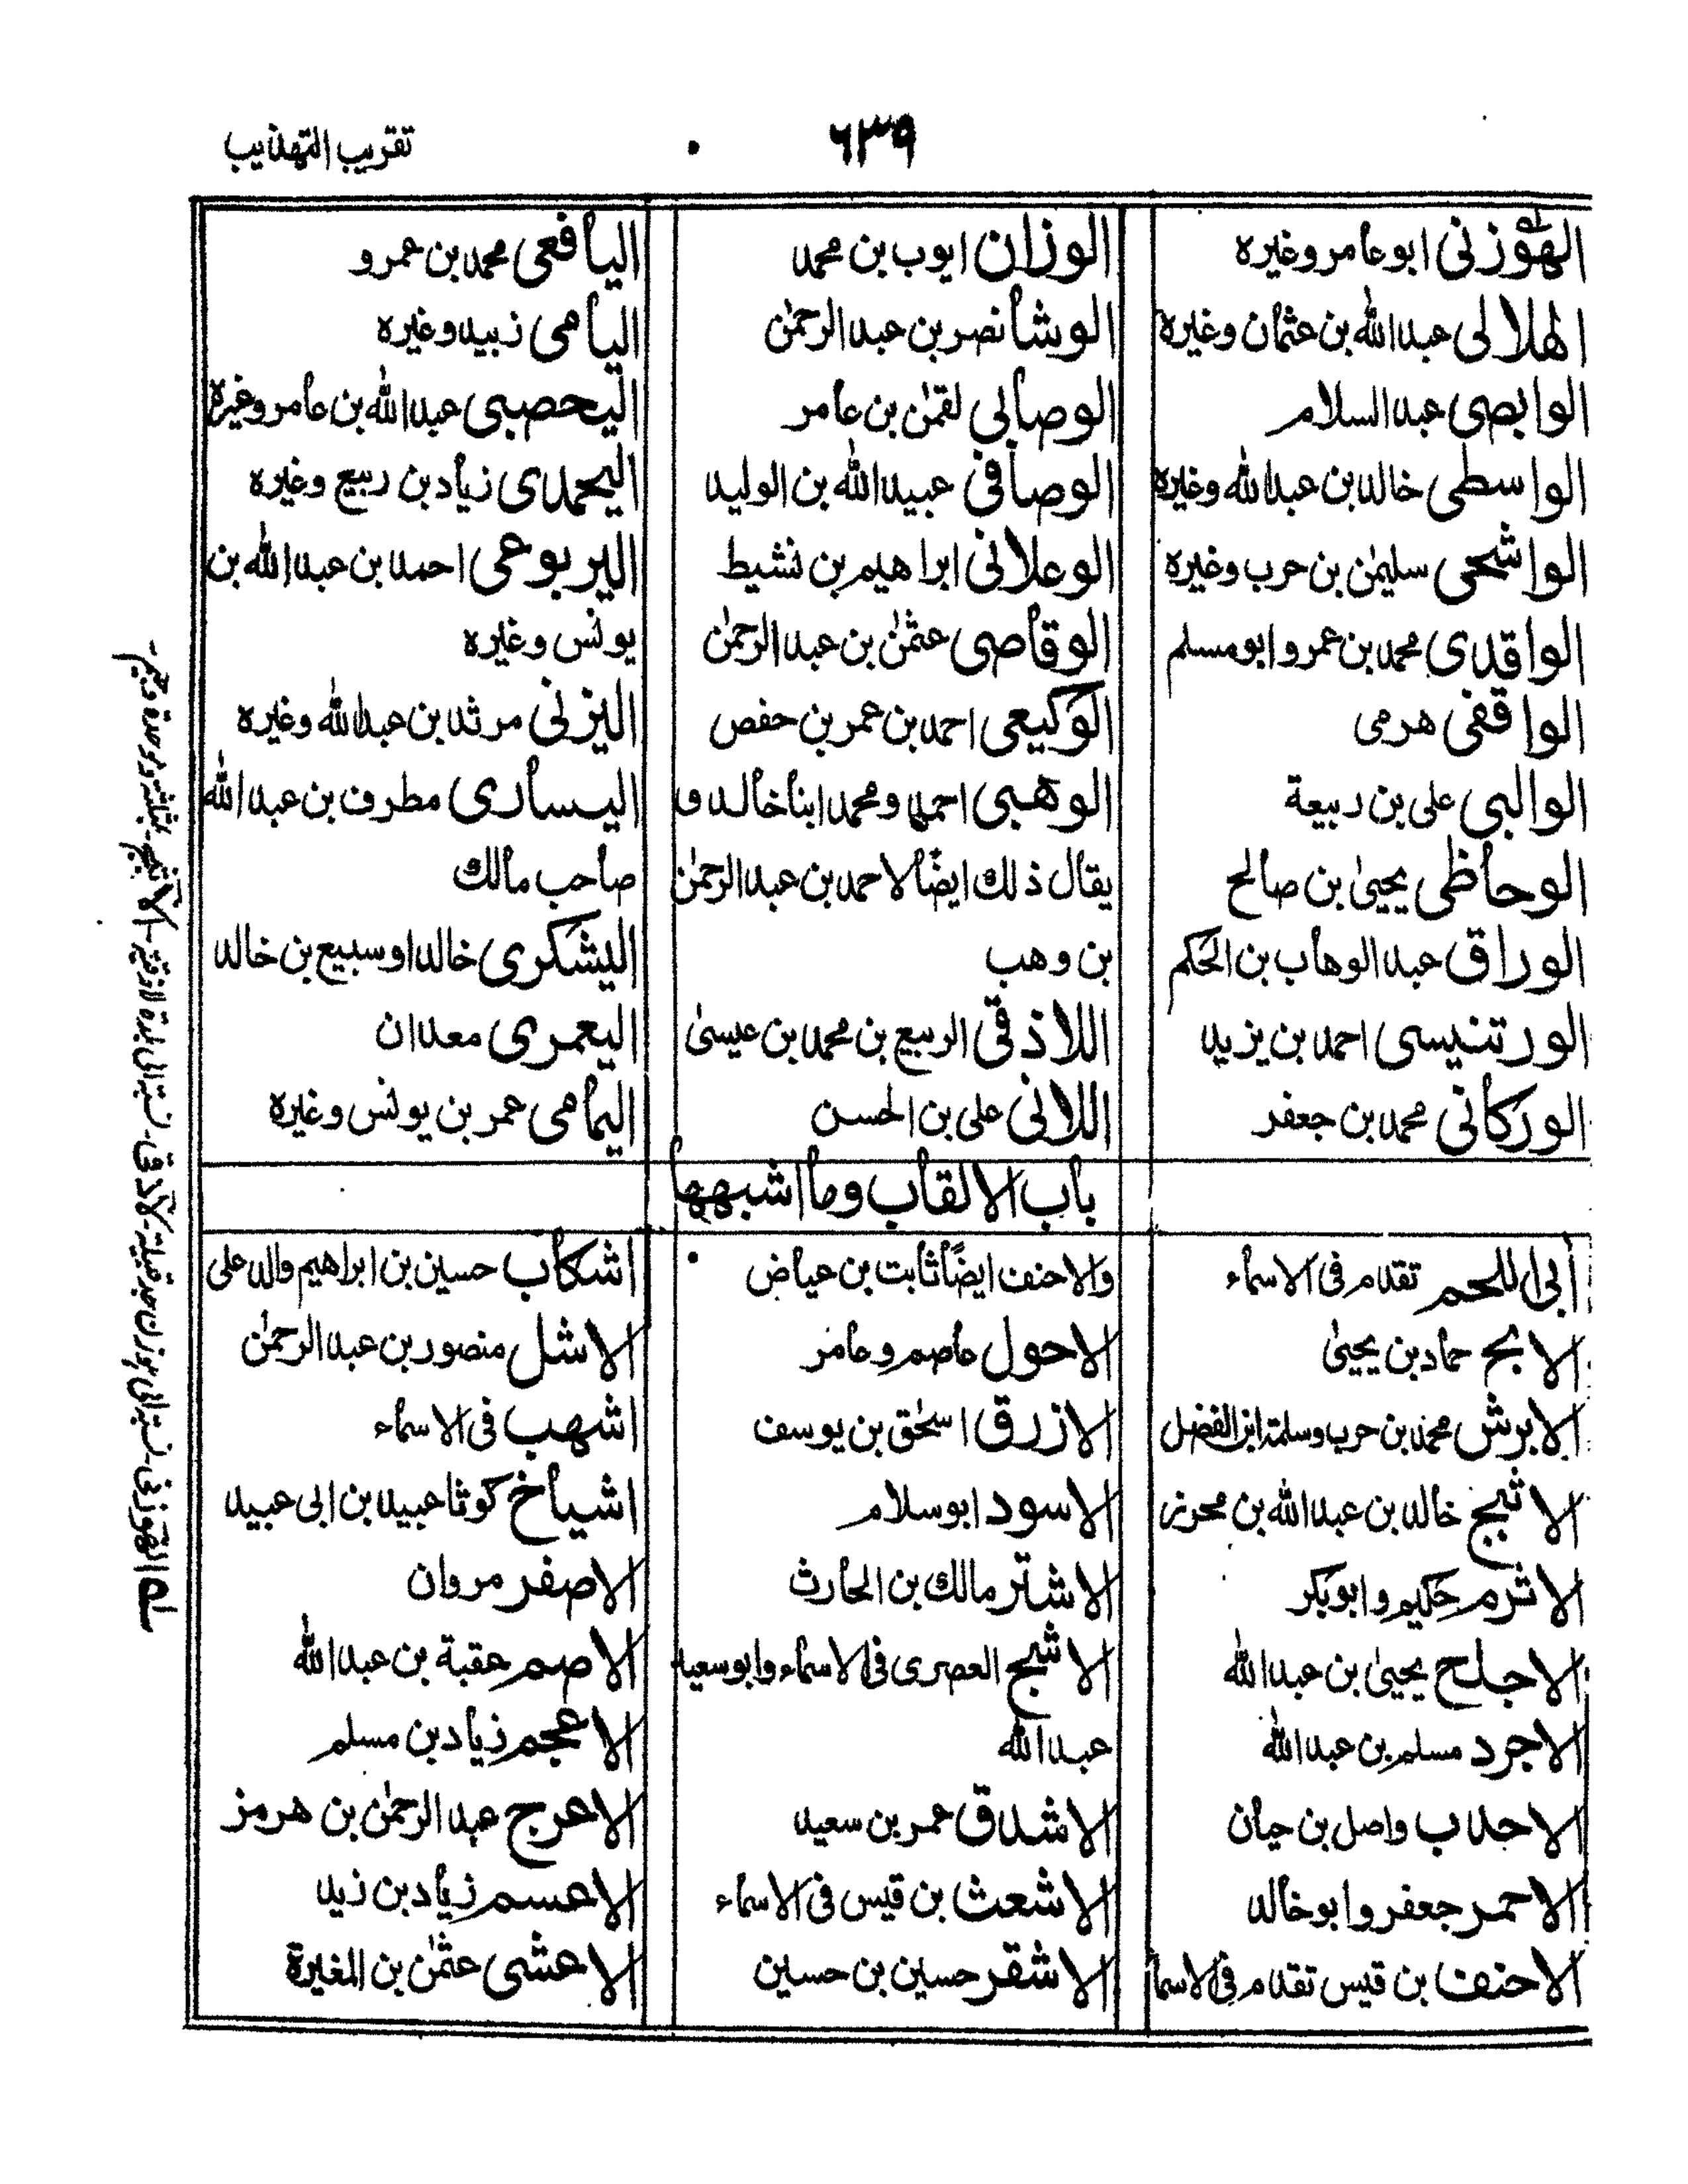 تقريب التهذيب
٦٣٩
الهوزنى ابو عامر وغيره
الهلالى عبد الله بن عثمان وغيره
الوابصى عبد السلام
الواسطى خالد بن عبد الله وغيره
الواشحى سليمٰن بن حرب وغيره
الواقدى محمد بن عمر و ابو مسلم
الواقفى هرمى
الوالبى على بن ربيعة
الوحاظى يحيىٰ بن صالح
الوراق عبد الوهاب بن الحكم
الورتنيسى احمد بن يزيد
الوركانى محمد بن جعفر
الوزان ايوب بن محمد
الوشا نصر بن عبد الرحمٰن
الوصابى لقمٰن بن عامر
الوصافى عبيد الله بن الوليد
الوعلانى ابراهيم بن نشيط
الوقاصى عثمٰن بن عبد الرحمٰن
الوكيعى احمد بن عمر بن حفص
الوهبى احمد ومحمد ابنا خالد و
يقال ذلك ايضًا لاحمد بن عبد الرحمٰن
بن وهب
اللاذقى الربيع بن محمد بن عيسىٰ
اللانى على بن الحسن
اليافعى محمد بن عمرو
اليامى زبيد وغيره
اليحصبى عبد الله بن عامر وغيره
اليحمدى زياد بن ربيع وغيره
اليربوعى احمد بن عبد الله بن
يونس وغيره
اليزنى مرثد بن عبد الله وغيره
اليسارى مطرف بن عبد الله
صاحب مالك
اليشكرى خالد او سبيع بن خالد
اليعمرى معدان
اليمامى عمر بن يونس وغيره
باب الالقاب وما اشبهها
أبى اللحم تقدم فى الاسماء
الابح حماد بن يحيىٰ
الابرش محمد بن حرب وسلمة ابن الفضل
الاثبج خالد بن عبد الله بن محرز
الاثرم حكيم وابو بكر
الاجلح يحيىٰ بن عبد الله
الاجرد مسلم بن عبد الله
الاحدب واصل بن حيان
الاحمر جعفر وابو خالد
الاحنف بن قيس تقدم فى الاسما
والاحنف ايضًا ثابت بن عياض
الاحول عاصم وعامر
الازرق اسحٰق بن يوسف
الاسود ابو سلام
الاشتر مالك بن الحارث
الاشج العصرى فى الاسماء وابو سعيد
عبد الله
الاشدق عمر بن سعيد
الاشعث بن قيس فى الاسماء
الاشقر حسين بن حسين
اشكاب حسين بن ابراهيم والد على
الاشل منصور بن عبد الرحمٰن
اشهب فى الاسماء
اشياخ كوثا عبيد بن ابى عبيد
الاصفر مروان
الاصم عقبة بن عبد الله
الاعجم زياد بن مسلم
الاعرج عبد الرحمٰن بن هرمز
الاعسم زياد بن زيد
الاعشى عثمٰن بن المغيرة